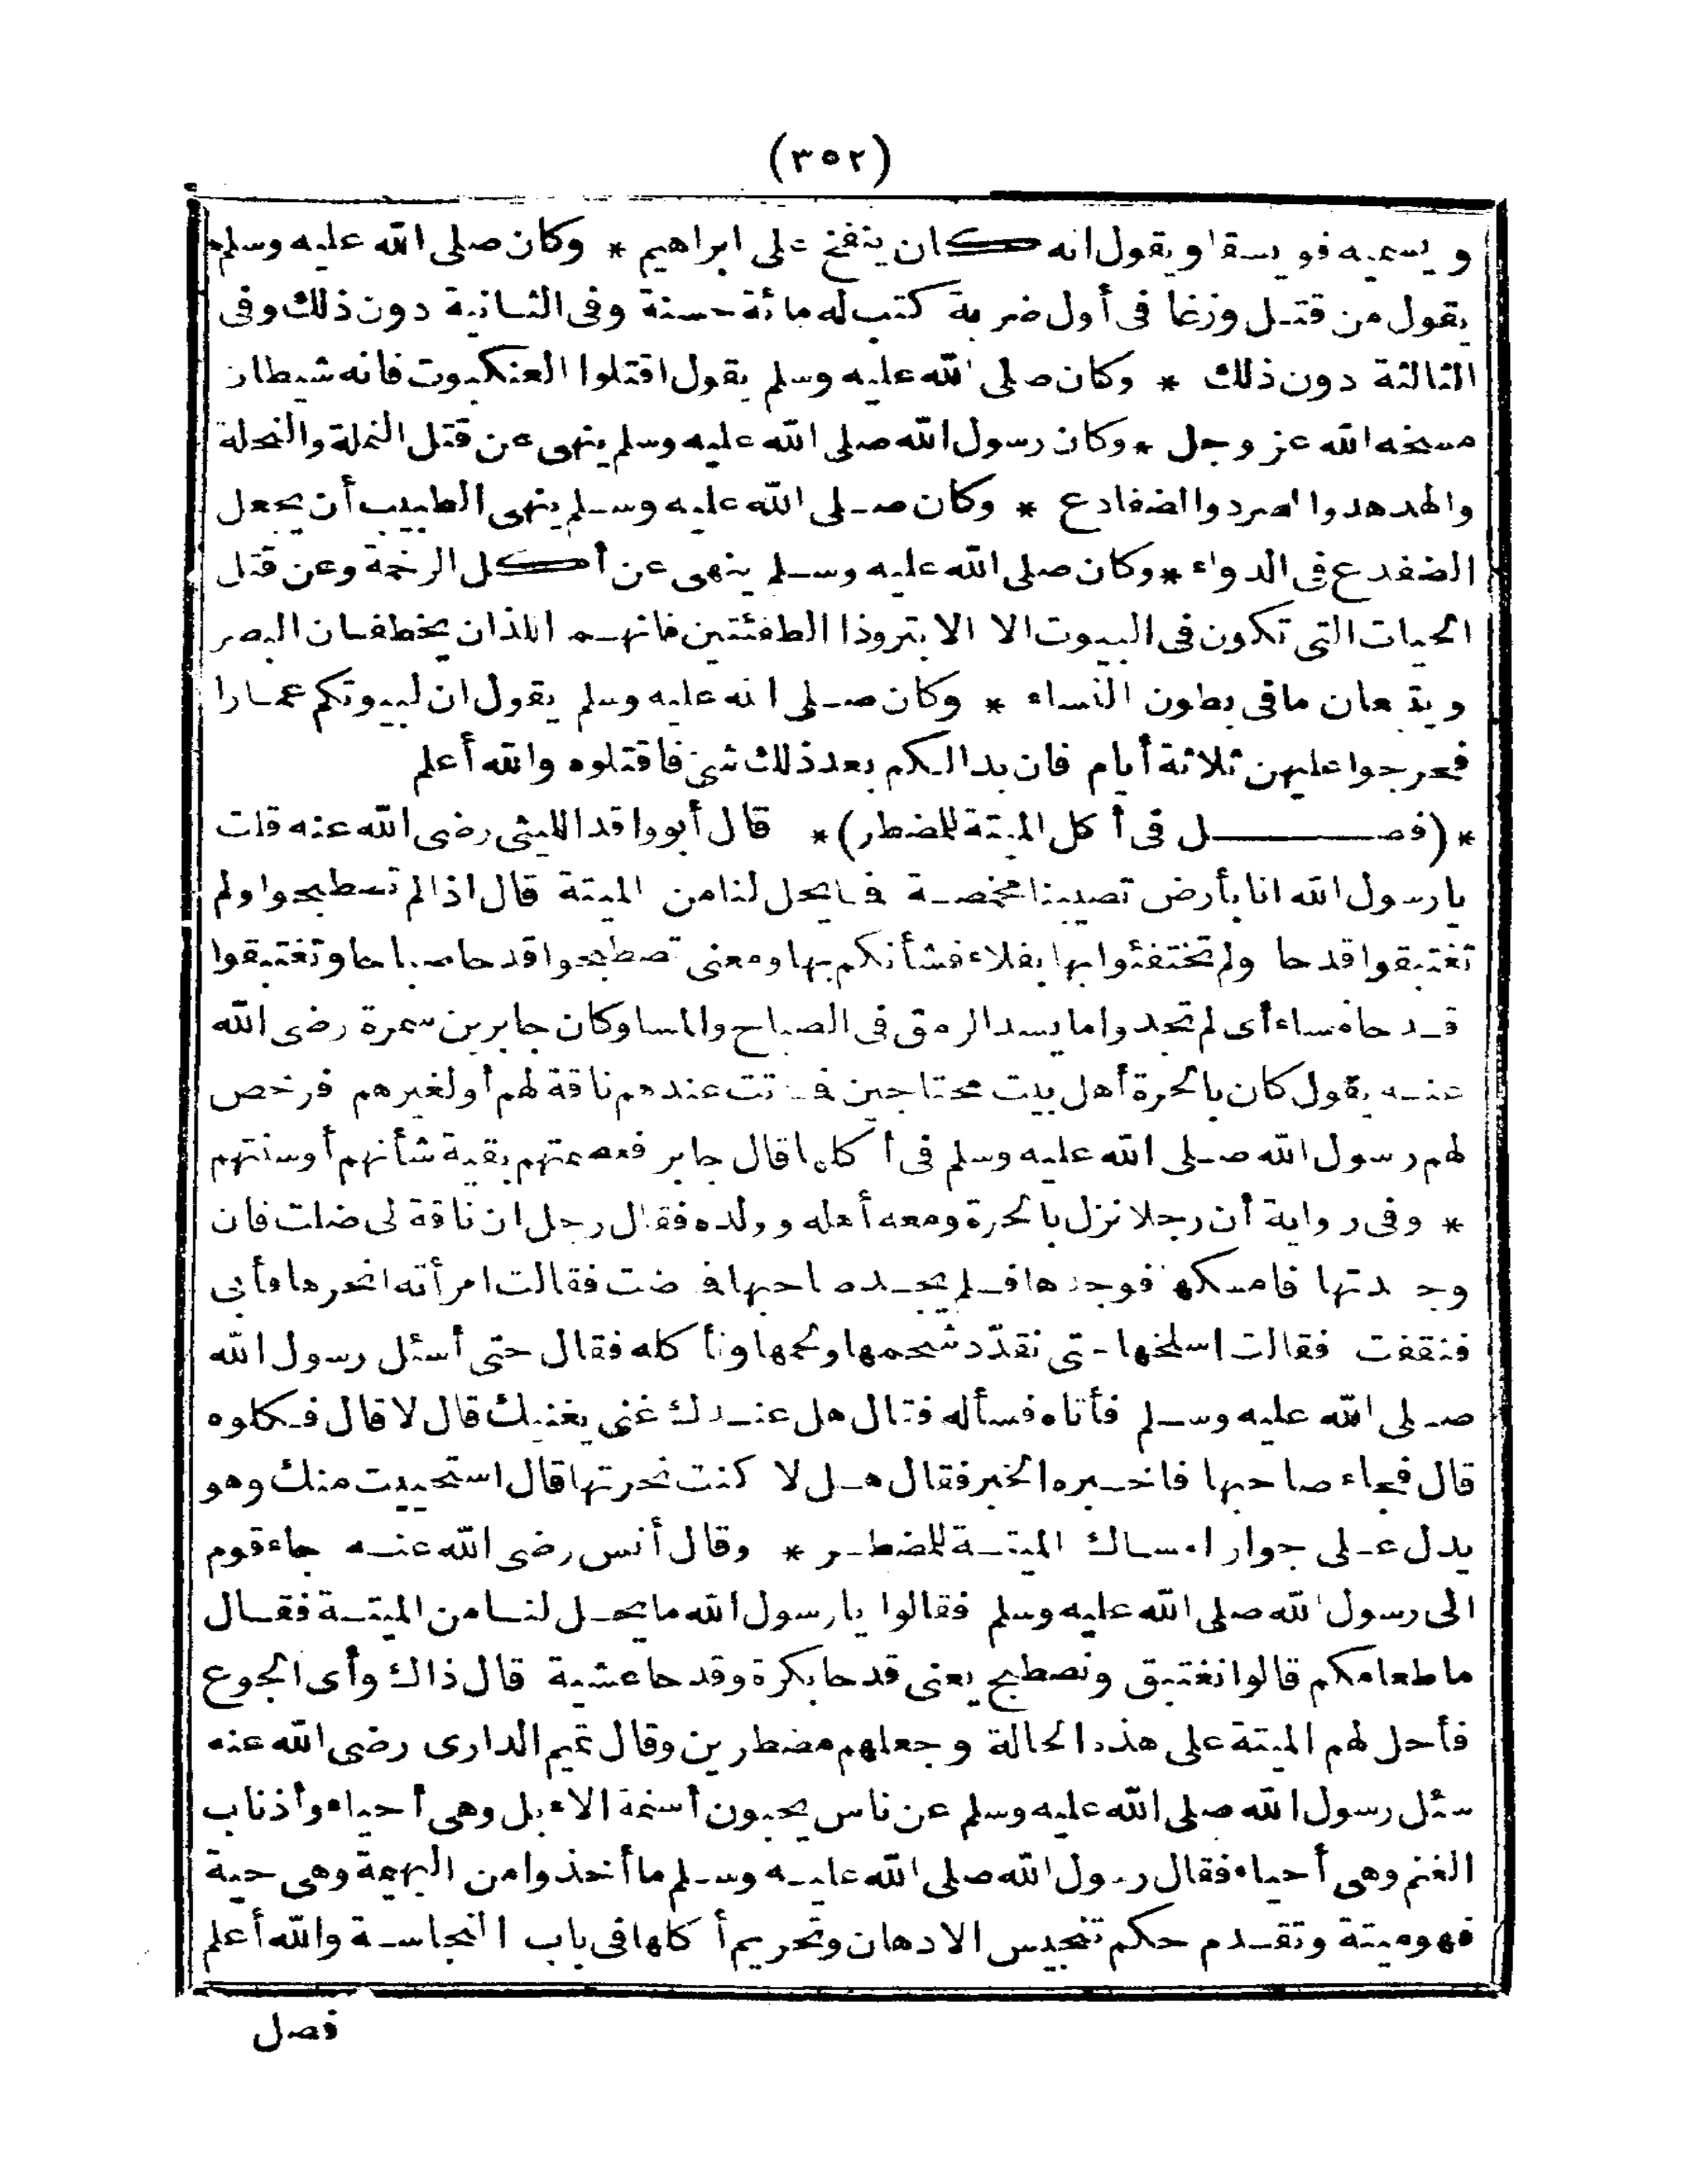 (٣٥٢)
ويسميه فويسقا ويقول انه كان ينفخ على ابراهيم * وكان صلى الله عليه وسلم
يقول من قتل وزغا فى أول ضربة كتب له مائة حسنة وفى الثانية دون ذلك وفى
الثالثة دون ذلك * وكان صلى الله عليه وسلم يقول اقتلوا العنكبوت فانه شيطان
مسخه الله عز وجل * وكان رسول الله صلى الله عليه وسلم ينهى عن قتل النملة والنحلة
والهدهد والصرد والضفادع * وكان صلى الله عليه وسلم ينهى الطبيب أن يجعل
الضفدع فى الدواء * وكان صلى الله عليه وسلم ينهى عن أكل الرخمة وعن قتل
الحيات التى تكون فى البيوت الا الابتر وذا الطفئتين فانهما اللذان يخطفان البصر
ويتبعان ما فى بطون النساء * وكان صلى الله عليه وسلم يقول ان لبيوتكم عمارا
فحرجوا عليهن ثلاثة أيام فان بدا لكم بعد ذلك شئ فاقتلوه والله أعلم
* (فصل فى أكل الميتة للمضطر) * قال أبو واقد الليثى رضى الله عنه قلت
يا رسول الله انا بأرض تصيبنا مخمصة فما يحل لنا من الميتة قال اذا لم تصطبحوا ولم
تغتبقوا قدحا ولم تختفئوا بها بقلاء فشأنكم بها ومعنى تصطبحوا قدحا صباحا وتغتبقوا
قدحا مساء أى لم تجدوا ما يسد الرمق فى الصباح والمسا وكان جابر بن سمرة رضى الله
عنه يقول كان بالحرة أهل بيت محتاجين فماتت عندهم ناقة لهم أو لغيرهم فرخص
لهم رسول الله صلى الله عليه وسلم فى أكلها قال جابر فعصمتهم بقية شأنهم أو سنتهم
* وفى رواية أن رجلا نزل بالحرة ومعه أهله وولده فقال رجل ان ناقة لى ضلت فان
وجدتها فامسكها فوجدها فلم يجد صاحبها فمرضت فقالت امرأته انحرها فأبى
فنقفت فقالت اسلخها حتى نقدّد شحمها ولحمها ونأكله فقال حتى أسئل رسول الله
صلى الله عليه وسلم فأتاه فسأله فقال هل عندك غنى يغنيك قال لا قال فكلوه
قال فجاء صاحبها فاخبره الخبر فقال هلا كنت نحرتها قال استحييت منك وهو
يدل على جوار امساك الميتة للمضطر * وقال أنس رضى الله عنه جاء قوم
الى رسول الله صلى الله عليه وسلم فقالوا يا رسول الله ما يحل لنا من الميتة فقال
ما طعامكم قالوا نغتبق ونصطبح يعنى قدحا بكرة وقدحا عشية قال ذاك وأى الجوع
فأحل لهم الميتة على هذه الحالة وجعلهم مضطرين وقال تميم الدارى رضى الله عنه
سئل رسول الله صلى الله عليه وسلم عن ناس يحبون أسنمة الابل وهى أحياء وأذناب
الغنم وهى أحياء فقال رسول الله صلى الله عليه وسلم ما أخذوا من البهيمة وهى حية
فهو ميتة وتقدم حكم تنجيس الادهان وتحريم أكلها فى باب النجاسة والله أعلم
فصل